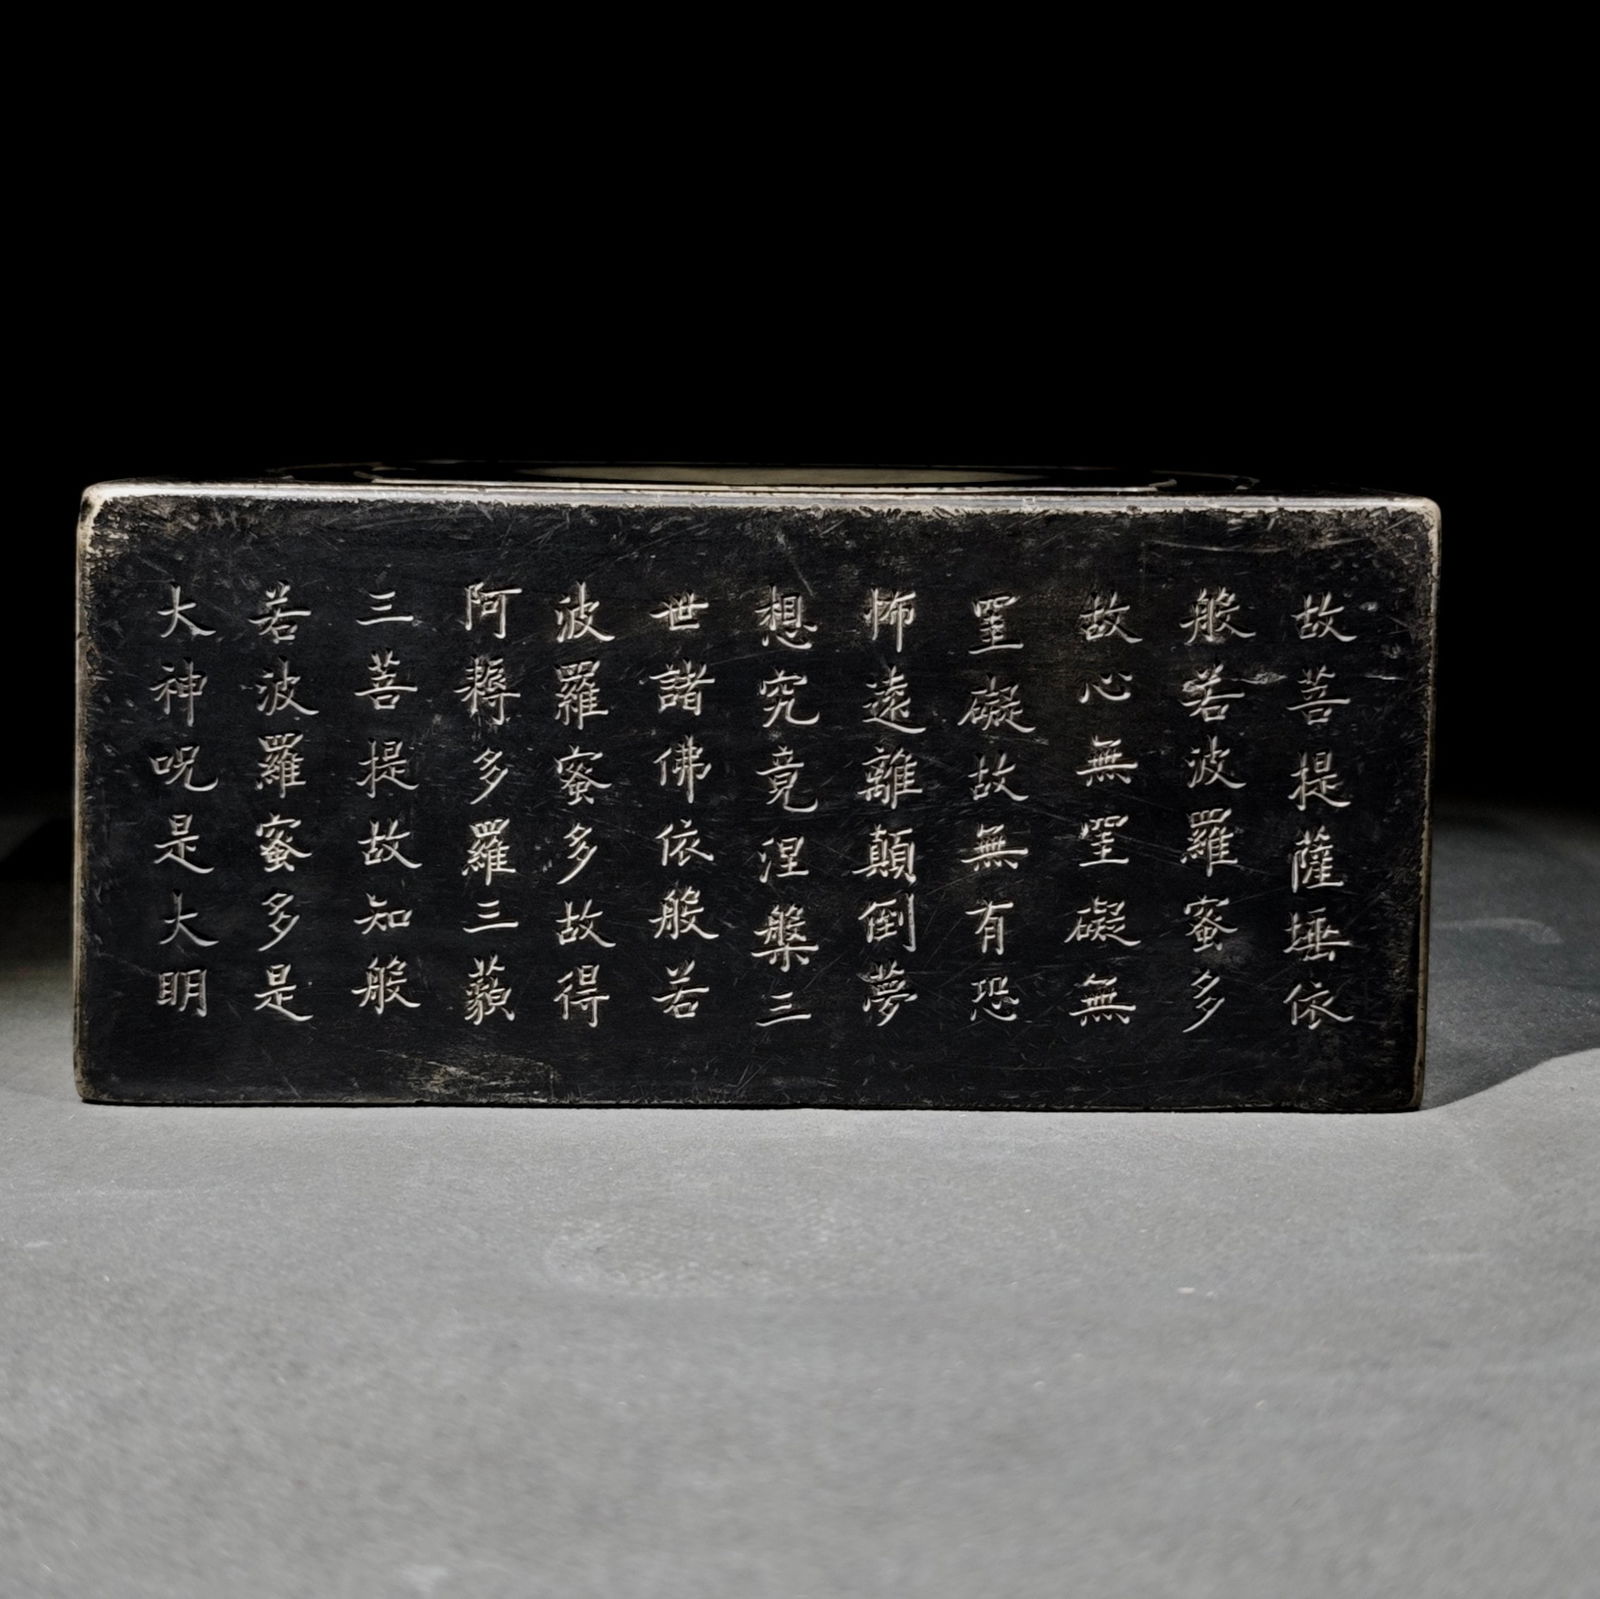 故菩提薩埵依
般若波羅蜜多
故心無罣礙無
罣礙故無有恐
怖遠離顛倒夢
想究竟涅槃三
世諸佛依般若
波羅蜜多故得
阿耨多羅三藐
三菩提故知般
若波羅蜜多是
大神呪是大明